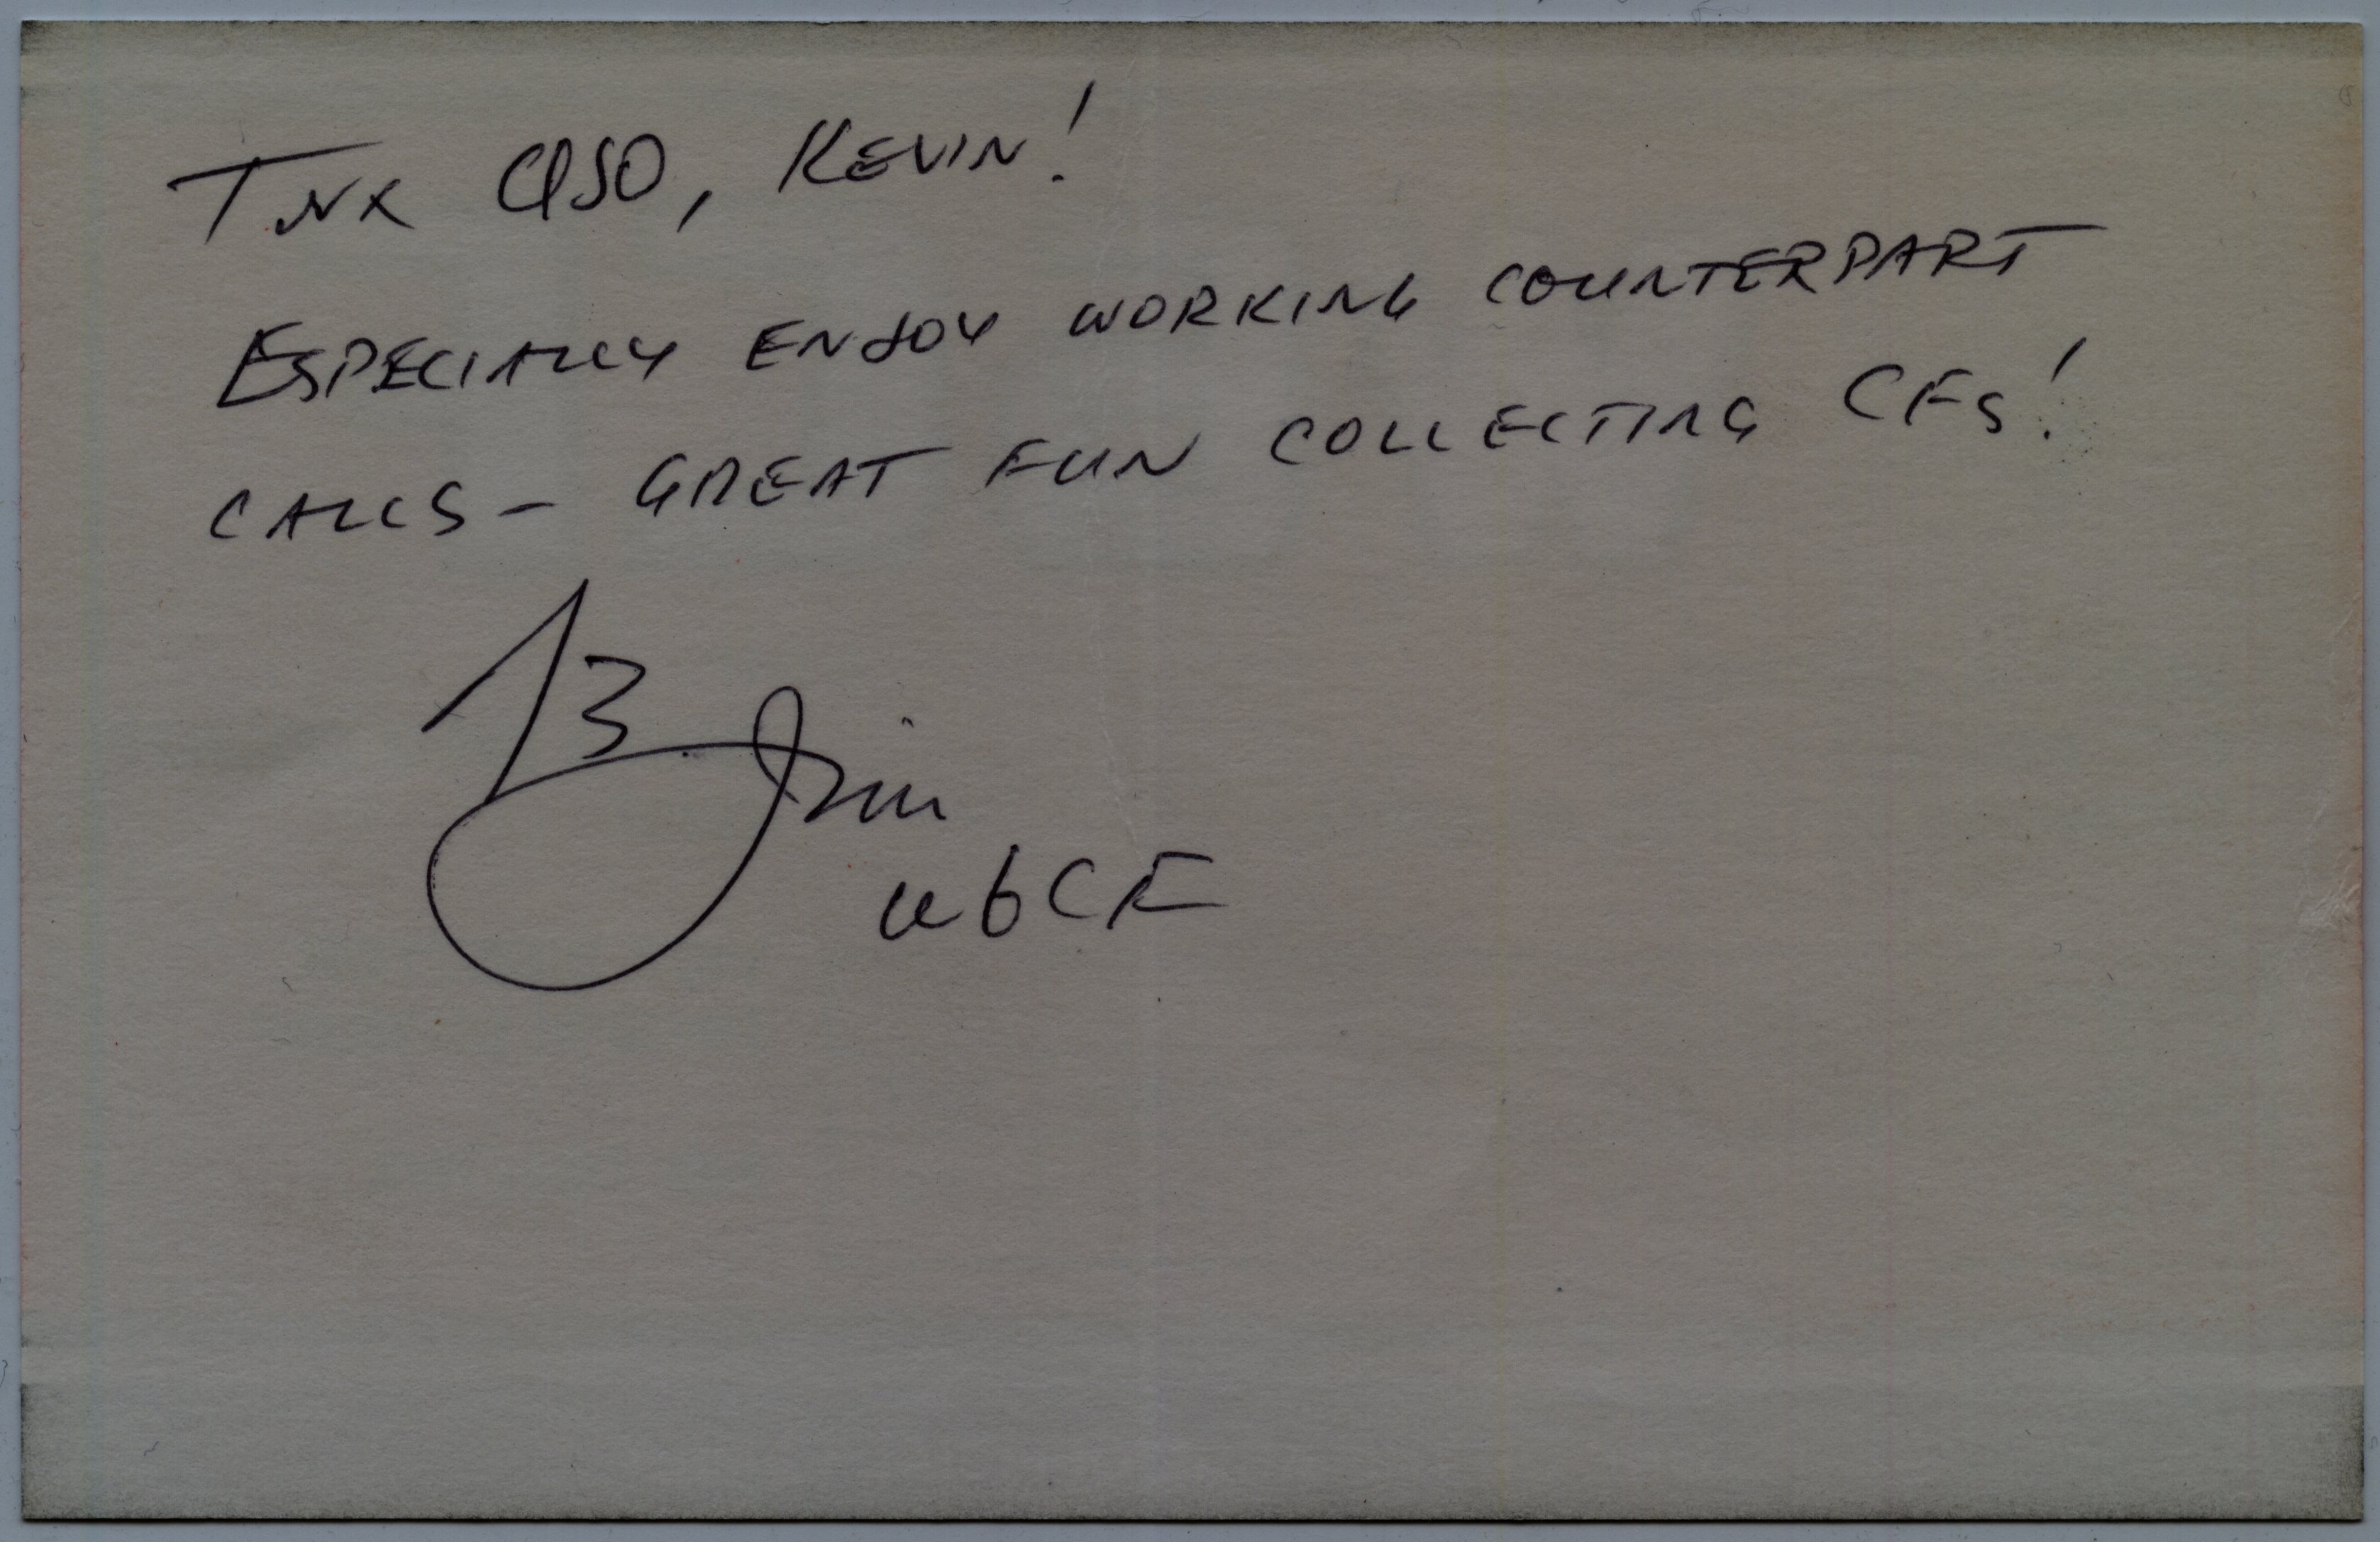 TNX QSO, KEVIN!
ESPECIALLY ENJOY WORKING COUNTERPART
CALLS - GREAT FUN COLLECTING CFs!
73 Jim
W6CF